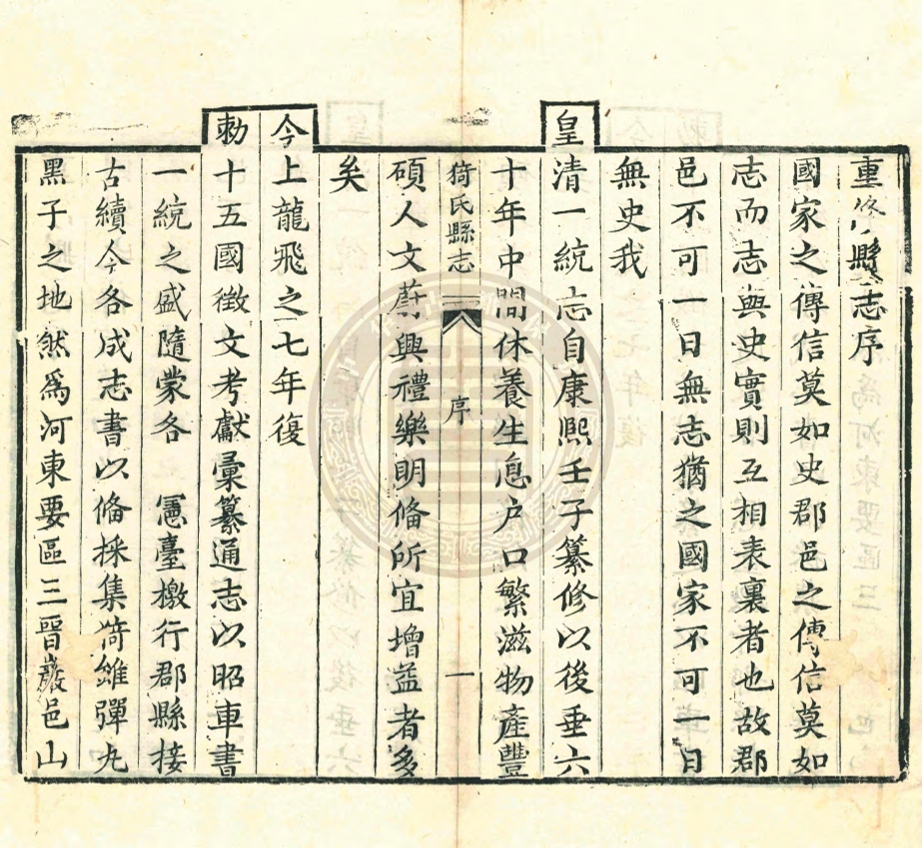 重修縣志序
國家之傳信莫如史郡邑之傳信莫如
志而志與史實則互相表裏者也故郡
邑不可一日無志猶之國家不可一日
無史我
皇清一統志自康熙壬子纂修以後垂六
十年中間休養生息户口繁滋物產豐
猗氏縣志 序 一
碩人文蔚興禮樂明俻所宜增益者多
矣
今上龍飛之七年復
勅十五國徵文考獻彙纂通志以昭車書
一統之盛隨蒙各 憲臺檄行郡縣接
古續今各成志書以俻採集猗雖彈丸
黑子之地然為河東要區三晉巖邑山